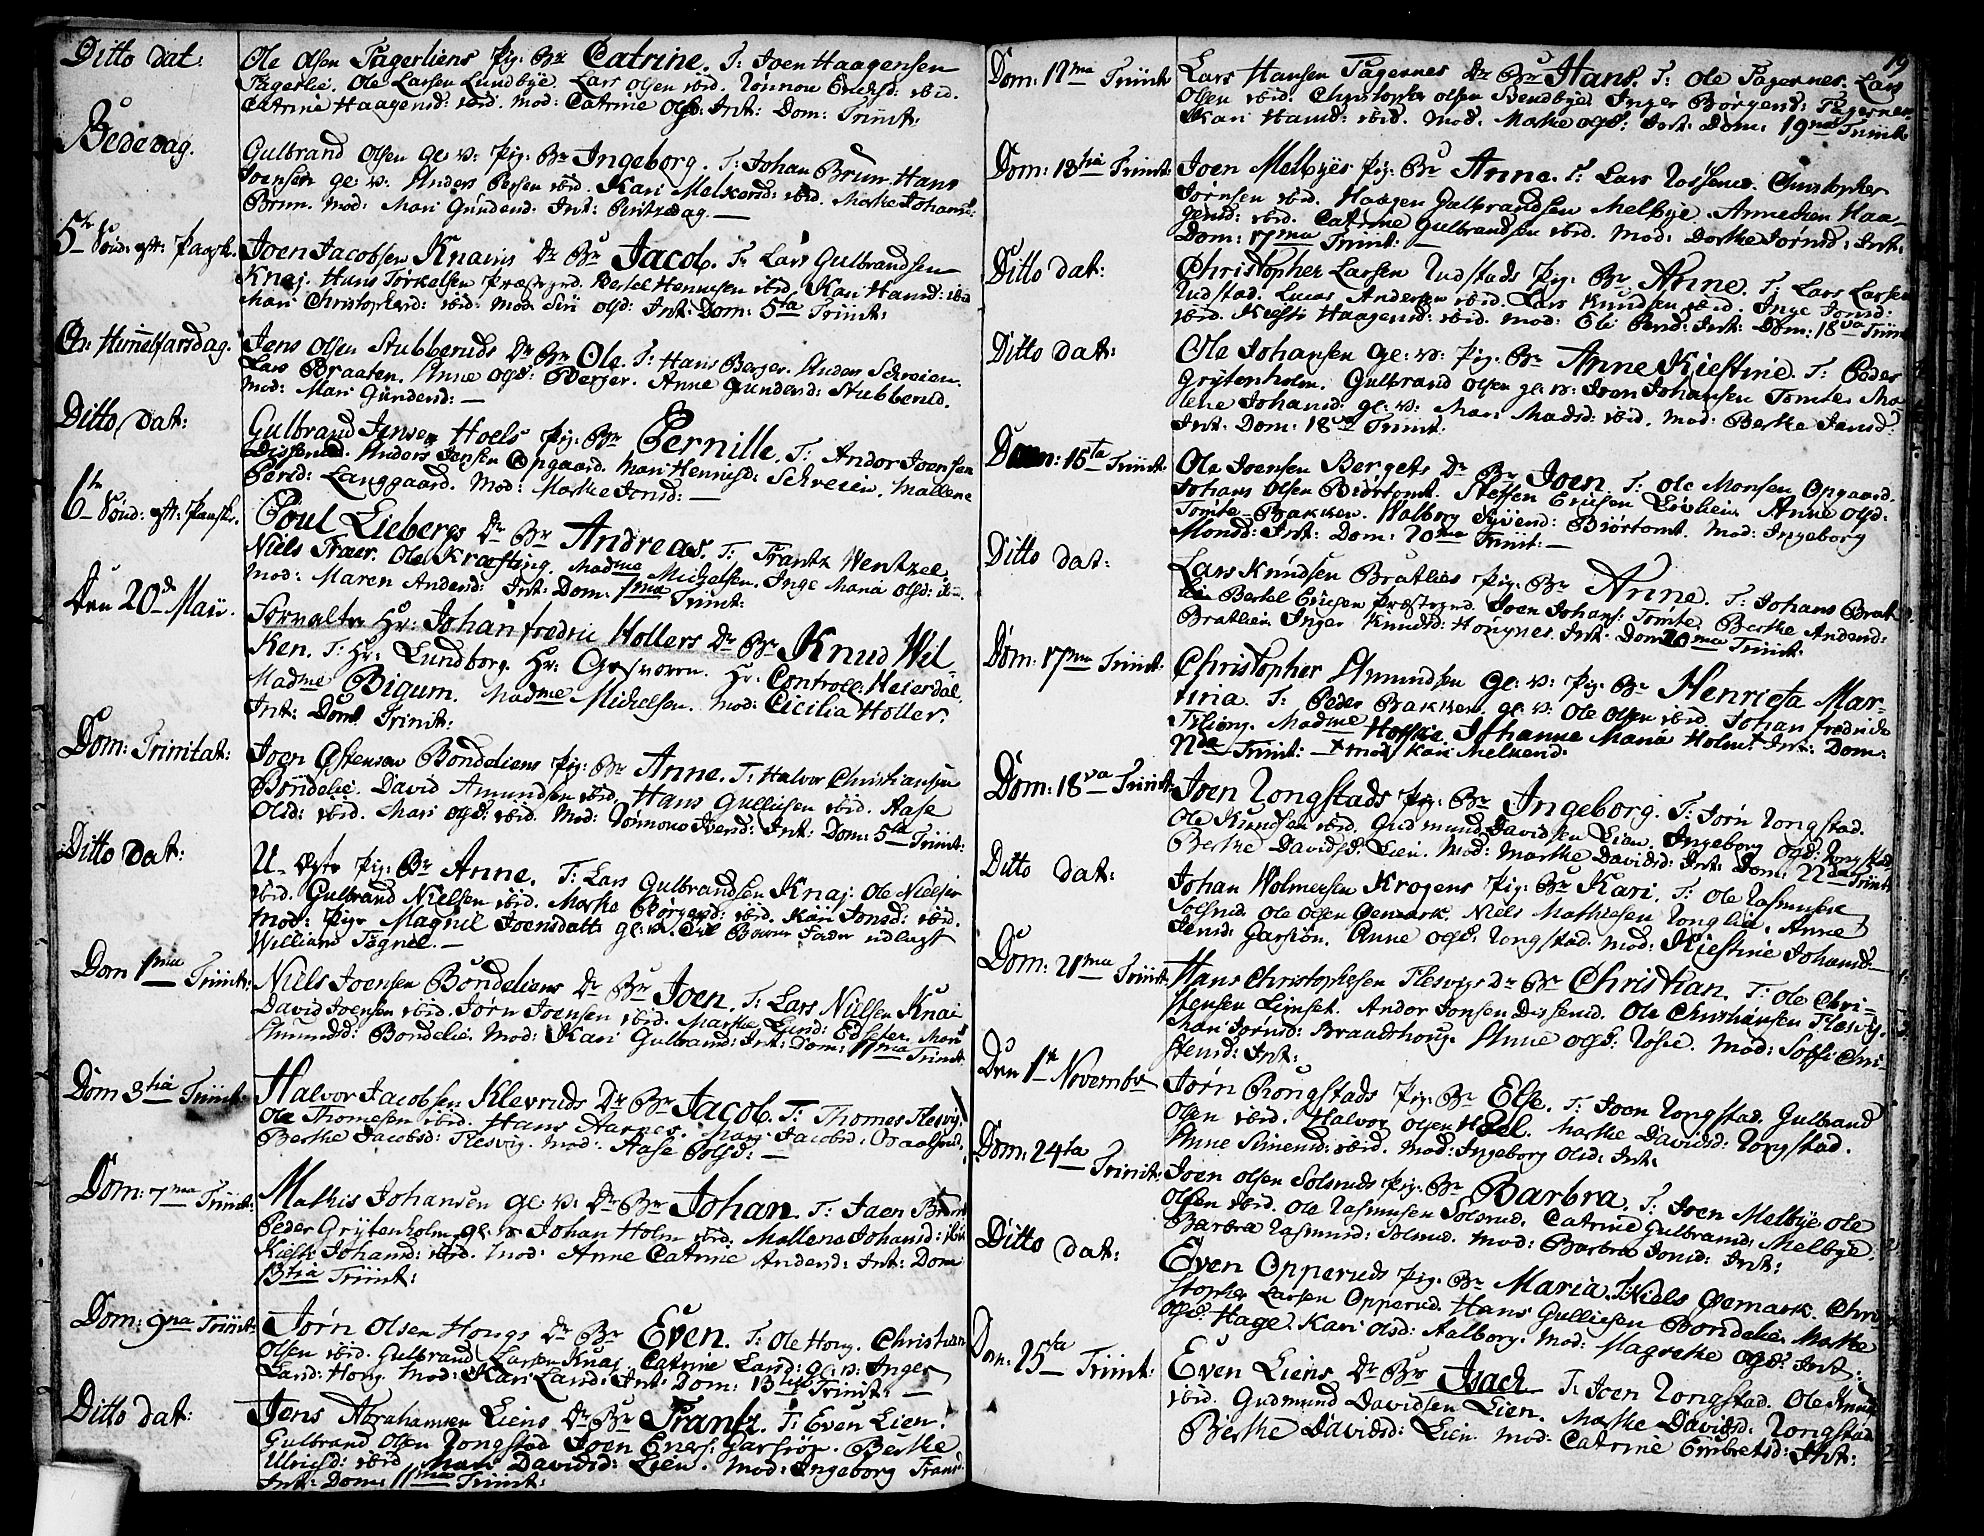 Ditto dat:
Ole Olsen Fagerliens Pig. Br Catrine. T: Joen Haagensen
Fagerlie. Ole Larsen Lundbye. Lars Olsen ibid. Rønnou Erichsd: ibid.
Catrine Haagensd: ibid. Mod: Catrine Olsd: Int: Dom: Trinit:
Bededag.
Gulbrand Olsen ge: v: Pig: Br Ingeborg. T: Johan Brun. Hans
Joensen ge: v: Anders Persen ibid. Kari Melkersd: ibid. Marthe Johansd:
Brun. Mod: Mari Gundersd: Int: Pintzedag. —
5te Sønd: eft: Paaske.
Joen Jacobsen Knaiis Dr Br Jacob. T: Lars Gulbrandsen
Knaj. Hans Torkelsen Præsterud. Bertel Hennusen ibid. Kari Hansd: ibid
Mari Christophersd: ibid: Mod: Siri Olsd: Int: Dom: 5ta Trinit:
Chr: Himelfarsdag.
Jens Olsen Stubberuds Dr Br Ole. T: Hans Berger. Anders Schreien.
Lars Braaten. Anne Olsd: Berger. Anne Gundersd: Stubberud.
Mod: Mari Gundersd: —
Ditto dat:
Gulbrand Jensen Hoels Pig: Br Pernille. T: Andor Joensen
Disserud. Anders Jensen Opgaard. Mari Hennigsd: Schreien. Mallene
Persd: Langgaard. Mod: Marthe Jonsd: —
6te Sønd: eft: Paaske.
Poul Liebergs Dr Br Andreas. T: Frantz Wentzel.
Niels Traer. Ole Kræfting. Madme Michelsen. Inge Maria Olsd: ibid.
Mod: Maren Andersd: Int: Dom: 1ma Trinit:
Den 20de Maii.
Forvalter Hr: Johan fredric Hollers Dr Br Knud Wil-
Ken. T: Hr: Lundborg. Hr: Gresvoren. Hr: Controll: Heierdal.
Madme Bigum. Madme Michelsen. Mod: Cecilia Holler.
Int: Dom: Trinit:
Dom: Trinitat:
Joen Østensen Bondeliens Pig: Br Anne. T: Halvor Christiansen
Bondelie. David Amundsen ibid. Hans Gulliksen ibid. Aase
Olsd: ibid. Mari Olsd: ibid. Mod: Rønnou Iversd: Int: Dom: 5ta Trinit:
Ditto dat:
U-ægte Pig: Br Anne. T: Lars Gulbrandsen Knaj. Ole Nielsen
ibid. Gulbrand Nielsen ibid. Marthe Børgersd: ibid. Kari Jonsd: ibid.
Mod: Pige Magnil Joensdatter ge: v: Til Barne Fader udlagt
William Tegnel. —
Dom 1ma Trinit:
Niels Joensen Bondeliens Dr Br Joen. T: Lars Nielsen Knai
David Joensen ibid. Jørn Joensen ibid. Marthe Lund: Edseter. Mari
Amundsd: Bondelie. Mod: Kari Gulbrand: Int: Dom: 11ma Trinit:
Dom 3tia Trinit:
Halvor Jacobsen Klevruds Dr Br Jacob. T: Thomes Flesvig.
Ole Thomesen ibid. Hans Aarnes. Mari Jacobsd: Opaalsrud.
Berthe Jacobsd: Flesvig. Mod: Aase Polsd: —
Dom: 7ma Trinit:
Mathis Johansen ge: v: Dr Br Johan. T: Joen Brun
Peder Grytenholm ge: v: Johan Holm ibid. Mallene Johansd: ibid
Kiesti Johansd: ibid. Mod: Anne Catrine Andersd: Int: Dom
13tia Trinit:
Dom: 9na Trinit:
Jørn Olsen Hougs Dr Br Even. T: Ole Houg. Christian
Olsen ibid. Gulbrand Larsen Knaj. Catrine Larsd: ge: v: Inger
Larsd: Houg. Mod: Kari Larsd: Int: Dom: 13tia Trinit: —
Ditto dat:
Jens Abrahamsen Liens Dr Br Frantz. T: Even Lien.
Gulbrand Olsen Rongstad Joen Eners: Garsiøn. Berthe
Ulrichsd: ibid. Mari Davidsd: Lien. Mod: Ingeborg Fransd:
Int: Dom: 11ma Trinit:
19
Dom: 12ma Trinit:
Lars Hansen Fagernes Dr Br Hans. T: Ole Fagernes. Lars
Olsen ibid. Christopher Olsen Sendbyes Inger Børgersd: Fagernes
Kari Hansd: ibid. Mod. Marthe Olsd: Int: Dom: 19na Trinit:
Dom: 13tia Trinit:
Joen Melbyes Pig: Br Anne. T: Lars Rosserud. Christopher
Jørnsen ibid. Haagen Gulbrandsen Melbye. Annechen Haa
gensd: ibid. Catrine Gulbrandsen ibid. Mod: Dorthe Jørnsd: Int:
Dom: 17ma Trinit: —
Ditto dat:
Christopher Larsen Rudstads Pig: Br Anne. T: Lars Larsen
Rudstad. Lucas Andersen ibid. Lars Knudsen ibid. Inge Jonsd:
ibid. Kiesti Haagensd: ibid. Mod: Eli Persd: Int: Dom: 18va Trinit
Ditto dat:
Ole Johansen ge: v: Pig: Br Anne Kiestine. T: Peder
Grytenholm. Gulbrand Olsen ge: v: Joen Johansen Tomte. Ma
lene Johansd: ge: v: Mari Madsd: ibid. Mod: Berthe Jansd:
Int: Dom: 18va Trinit:
Dom: 15ta Trinit:
Ole Joensen Bergets Dr Br Joen. T: Ole Monsen Opgaard.
Johans Olsen Biørtomt. Steffen Erichsen Lieslien Anne Olsd:
Tomte-Bakken. Walborg Syvend: Biørtomt. Mod: Ingeborg
Monsd: Int: Dom: 20ma Trinit: —
Ditto dat:
Lars Knudsen Bratlies Pig: Br Anne. T: Johans Brat-
lie Bertel Erichsen Præsterud. Joen Johans: Tomte. Berthe Andersd:
Bratlien Inger Knudsd: Hougnes. Int: Dom: 20ma Trinit:
Dom: 17ma Trinit:
Christopher Amundsen ge: v: Pig: Br Henrieta Mar-
tina. T: Peder Bakken. ge: v: Ole Olsen ibid. Johan fredrich
Madme Hoffke. Johanne Maria Holm. Int: Dom:
22da Trinit: — Mod: Kari Melkersd:
Dom: 18va Trinit:
Joen Rongstads Pig: Br Ingeborg. T: Jørn Rongstad.
Ole Knudsen ibid. Gudmund Davidsen Lien. Ingeborg Olsd: Rongstad
Berthe Davidsd: Lien. Mod: Marthe Davidsd: Int: Dom: 22da Trinit
Ditto dat:
Johan Wolmersen Krogens Pig: Br Kari. T: Ole Rasmusen
Solsrud. Ole Olsen Gemark. Niels Mathiesen Ronglie. Anne
Jensd: Garsiøn. Anne Olsd: Rongstad. Mod: Kiestine Johansd: —
Dom: 21ma Trinit:
Hans Christophersen Flesvigs Dr Br Christian. T: Ole Chri-
stensen Limset. Andor Jonsen Disserud. Ole Christiansen Flesvig.
Mari Jørnsd: Braadthoug. Anne Olsd: Røsie. Mod: Soffi Chri-
stensd: Int:
Den 1te Novembr
Jørn Rongstads Pig: Br Else. T: Joen Rongstad. Gulbrand
Olsen ibid. Halvor Olsen Hoel. Marthe Davidsd: Rongstad.
Anne Simensd: ibid. Mod: Ingeborg Olsd: Int:
Dom: 24ta Trinit:
Joen Olsen Solsruds Pig: Br Barbra. T: Joen Melbye Ole
Olsen ibid. Ole Rasmusen Solsrud. Catrine Gulbrandsd: Melbye.
Barbra Rasmusd: Solsrud. Mod: Barbra Jonsd: Int:
Ditto dat:
Even Opperuds Pig: Br Maria. T: Niels Gemark. Chri
stopher Larsen Opperud. Hans Gulliksen Bondelie. Marthe
Olsd: Hage. Kari Olsd: Aalborg. Mod: Magrethe Olsd: Int:
Dom: 25ta Trinit:
Even Liens Dr Br Isach T: Joen Rongstad. Ole Knuds
ibid. Gudmund Davidsen Lien. Marthe Davidsd: Rongstad
Berthe Davidsd: Lien. Mod: Catrine Embretsd: Int: